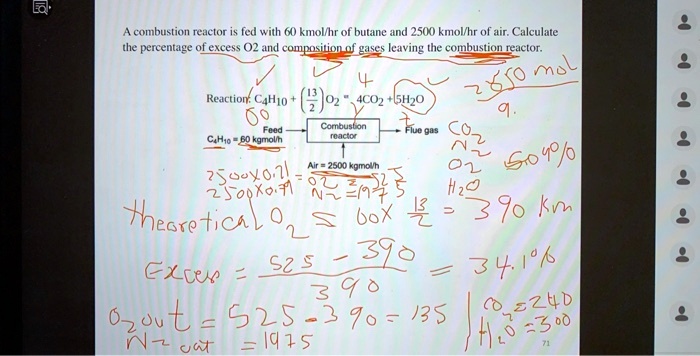 A combustion reactor is fed with 60 kmol/hr of butane and 2500 kmol/hr of air. Calculate
the percentage of excess O2 and composition of gases leaving the combustion reactor.
4
2650 mol
9.
Reaction: C4H10 + (13/2) O2 = 4CO2 + 5H2O
60
Feed
C4H10 = 60 kgmol/h
Combustion
reactor
Flue gas
Air = 2500 kgmol/h
CO2
N2
O2
H2O
5.09%
2500x0.21 = O2 = 525
2500x0.79 N2 = 1975
Theoretical O2 = 60x 13/2 = 390 Km
Excess = 525 - 390 / 390 = 34.1%
O2 out = 525 - 390 = 135
N2 out = 1975
CO2 = 240
H2O = 300
71